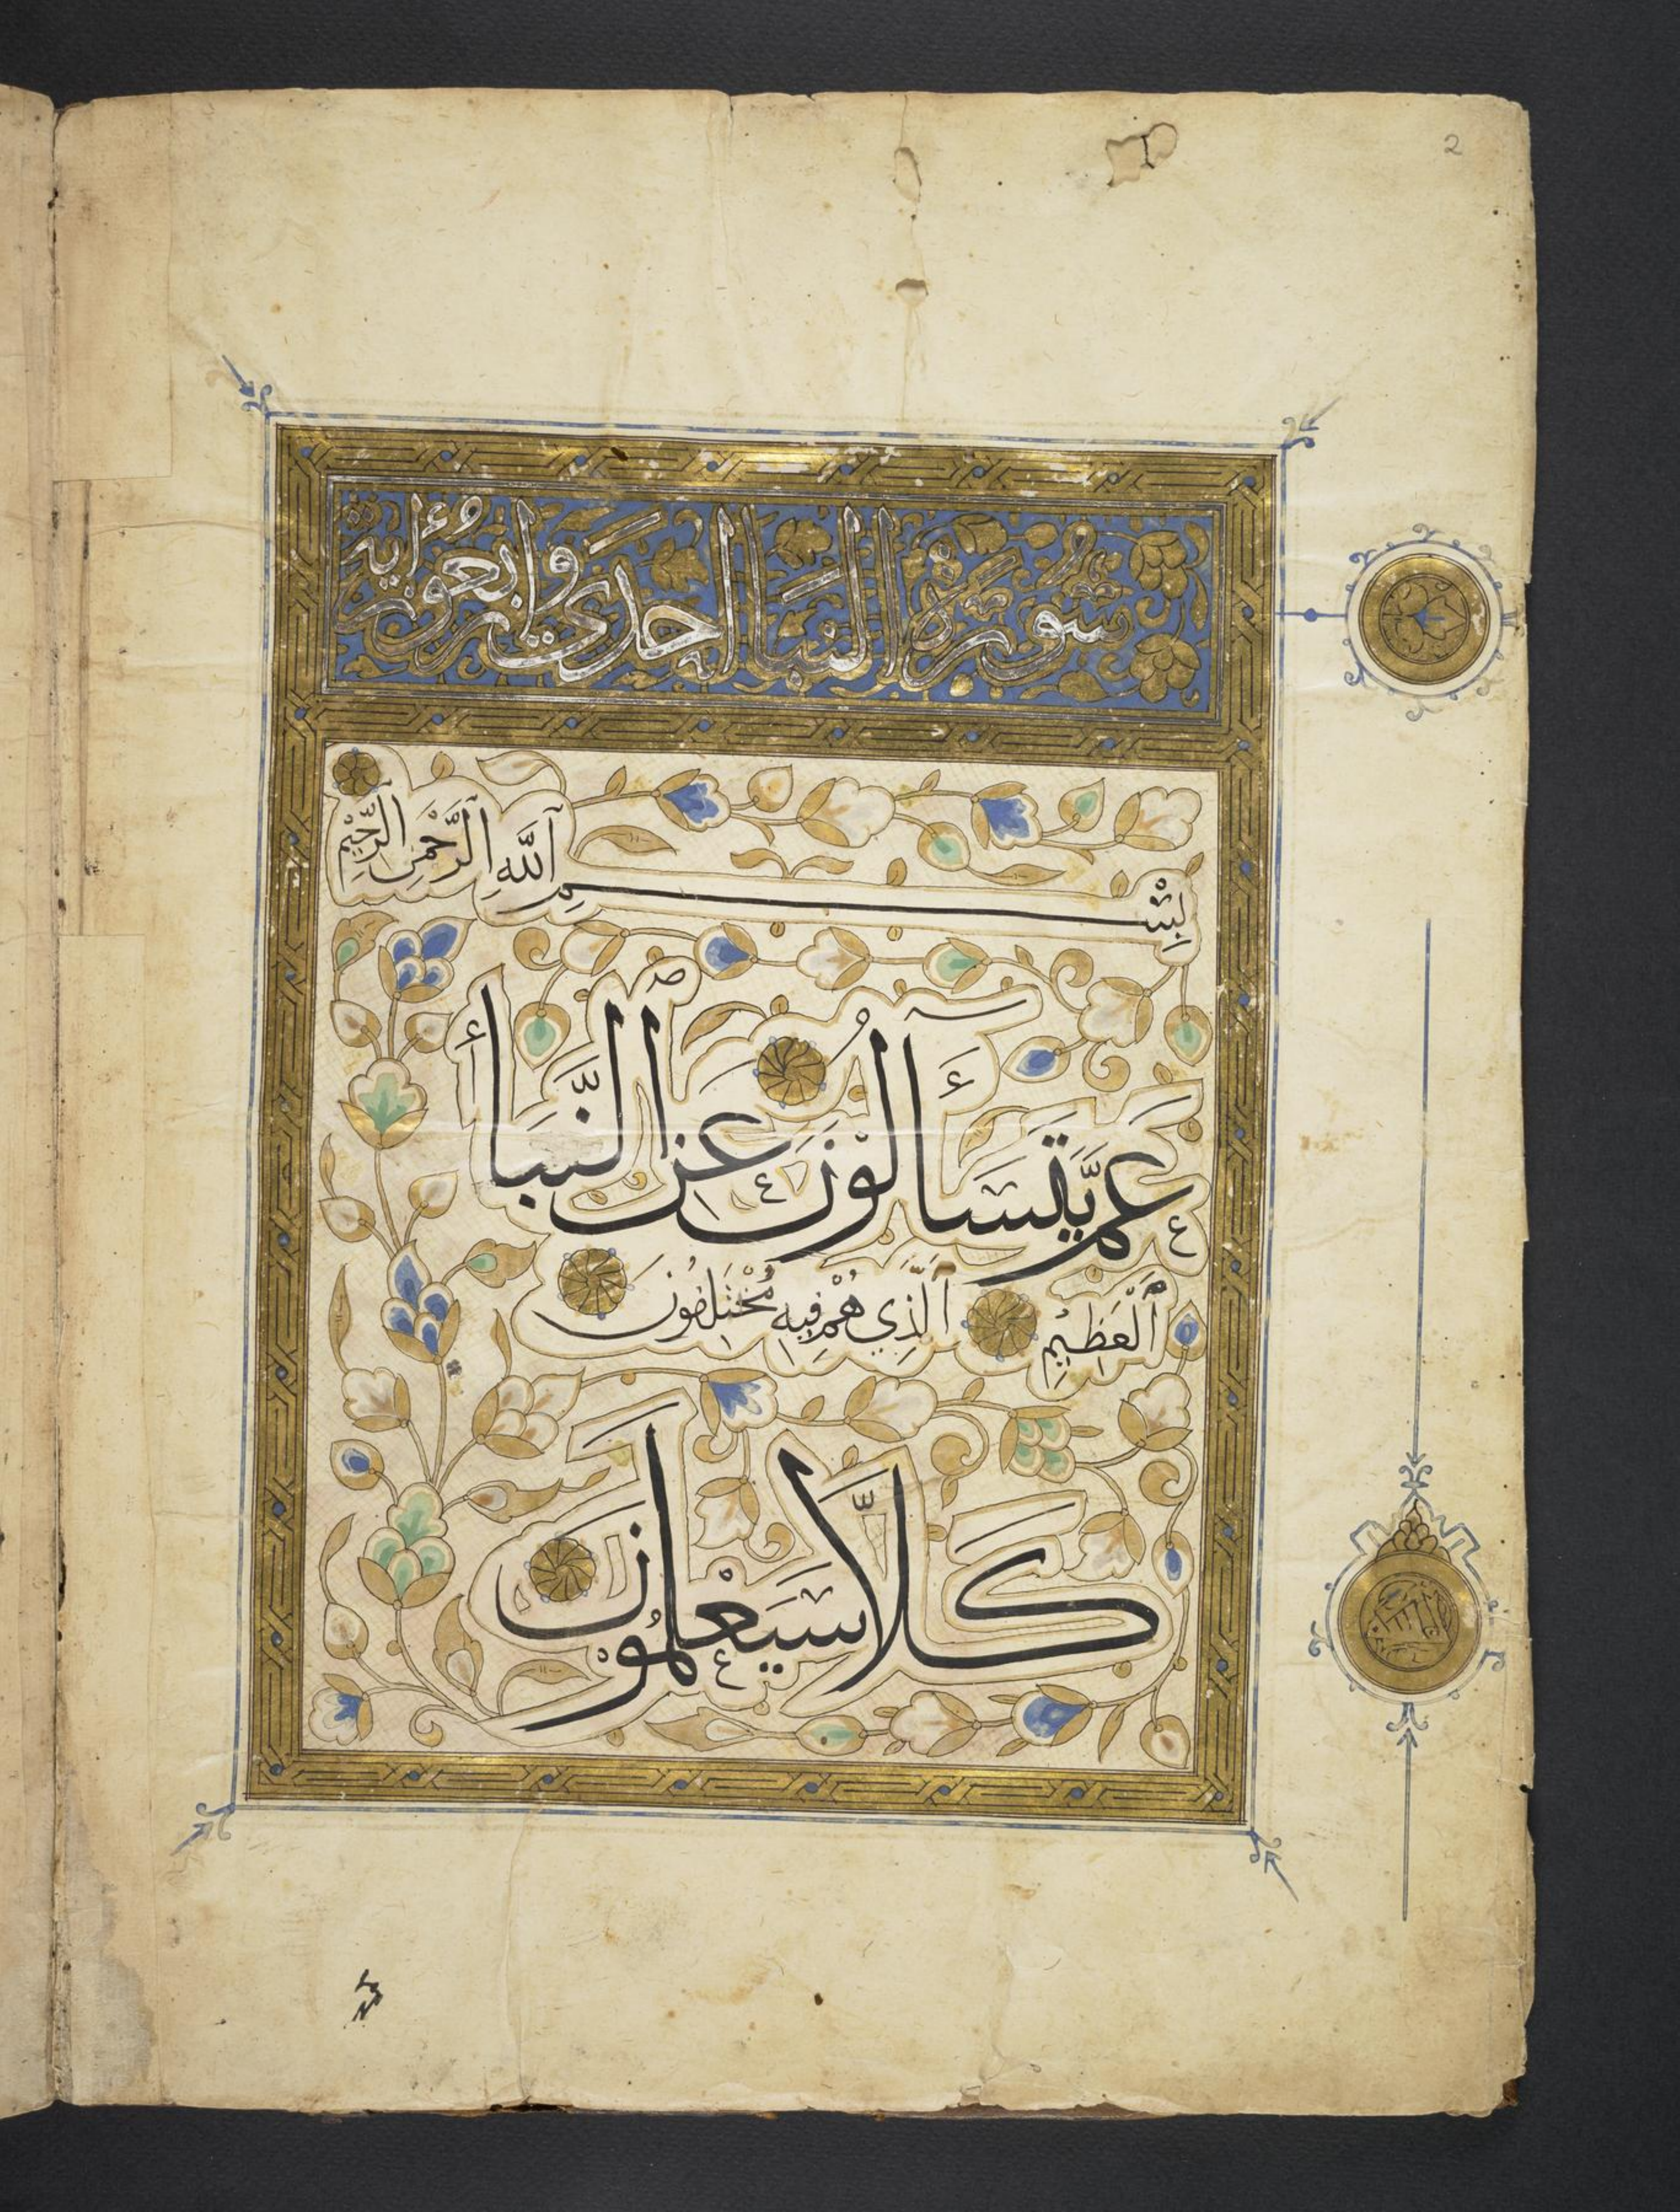 2
سُورَةُ النبأ احدى واربعون أية
بِسْمِ ٱللَّهِ ٱلرَّحْمَٰنِ ٱلرَّحِيْمِ
عَمَّ يَتَسَآءَلُونَ عَنِ ٱلنَّبَأِ
ٱلْعَظِيْمِ ٱلَّذِي هُمْ فِيهِ مُخْتَلِفُونَ
كَلَّا سَيَعْلَمُوْنَ